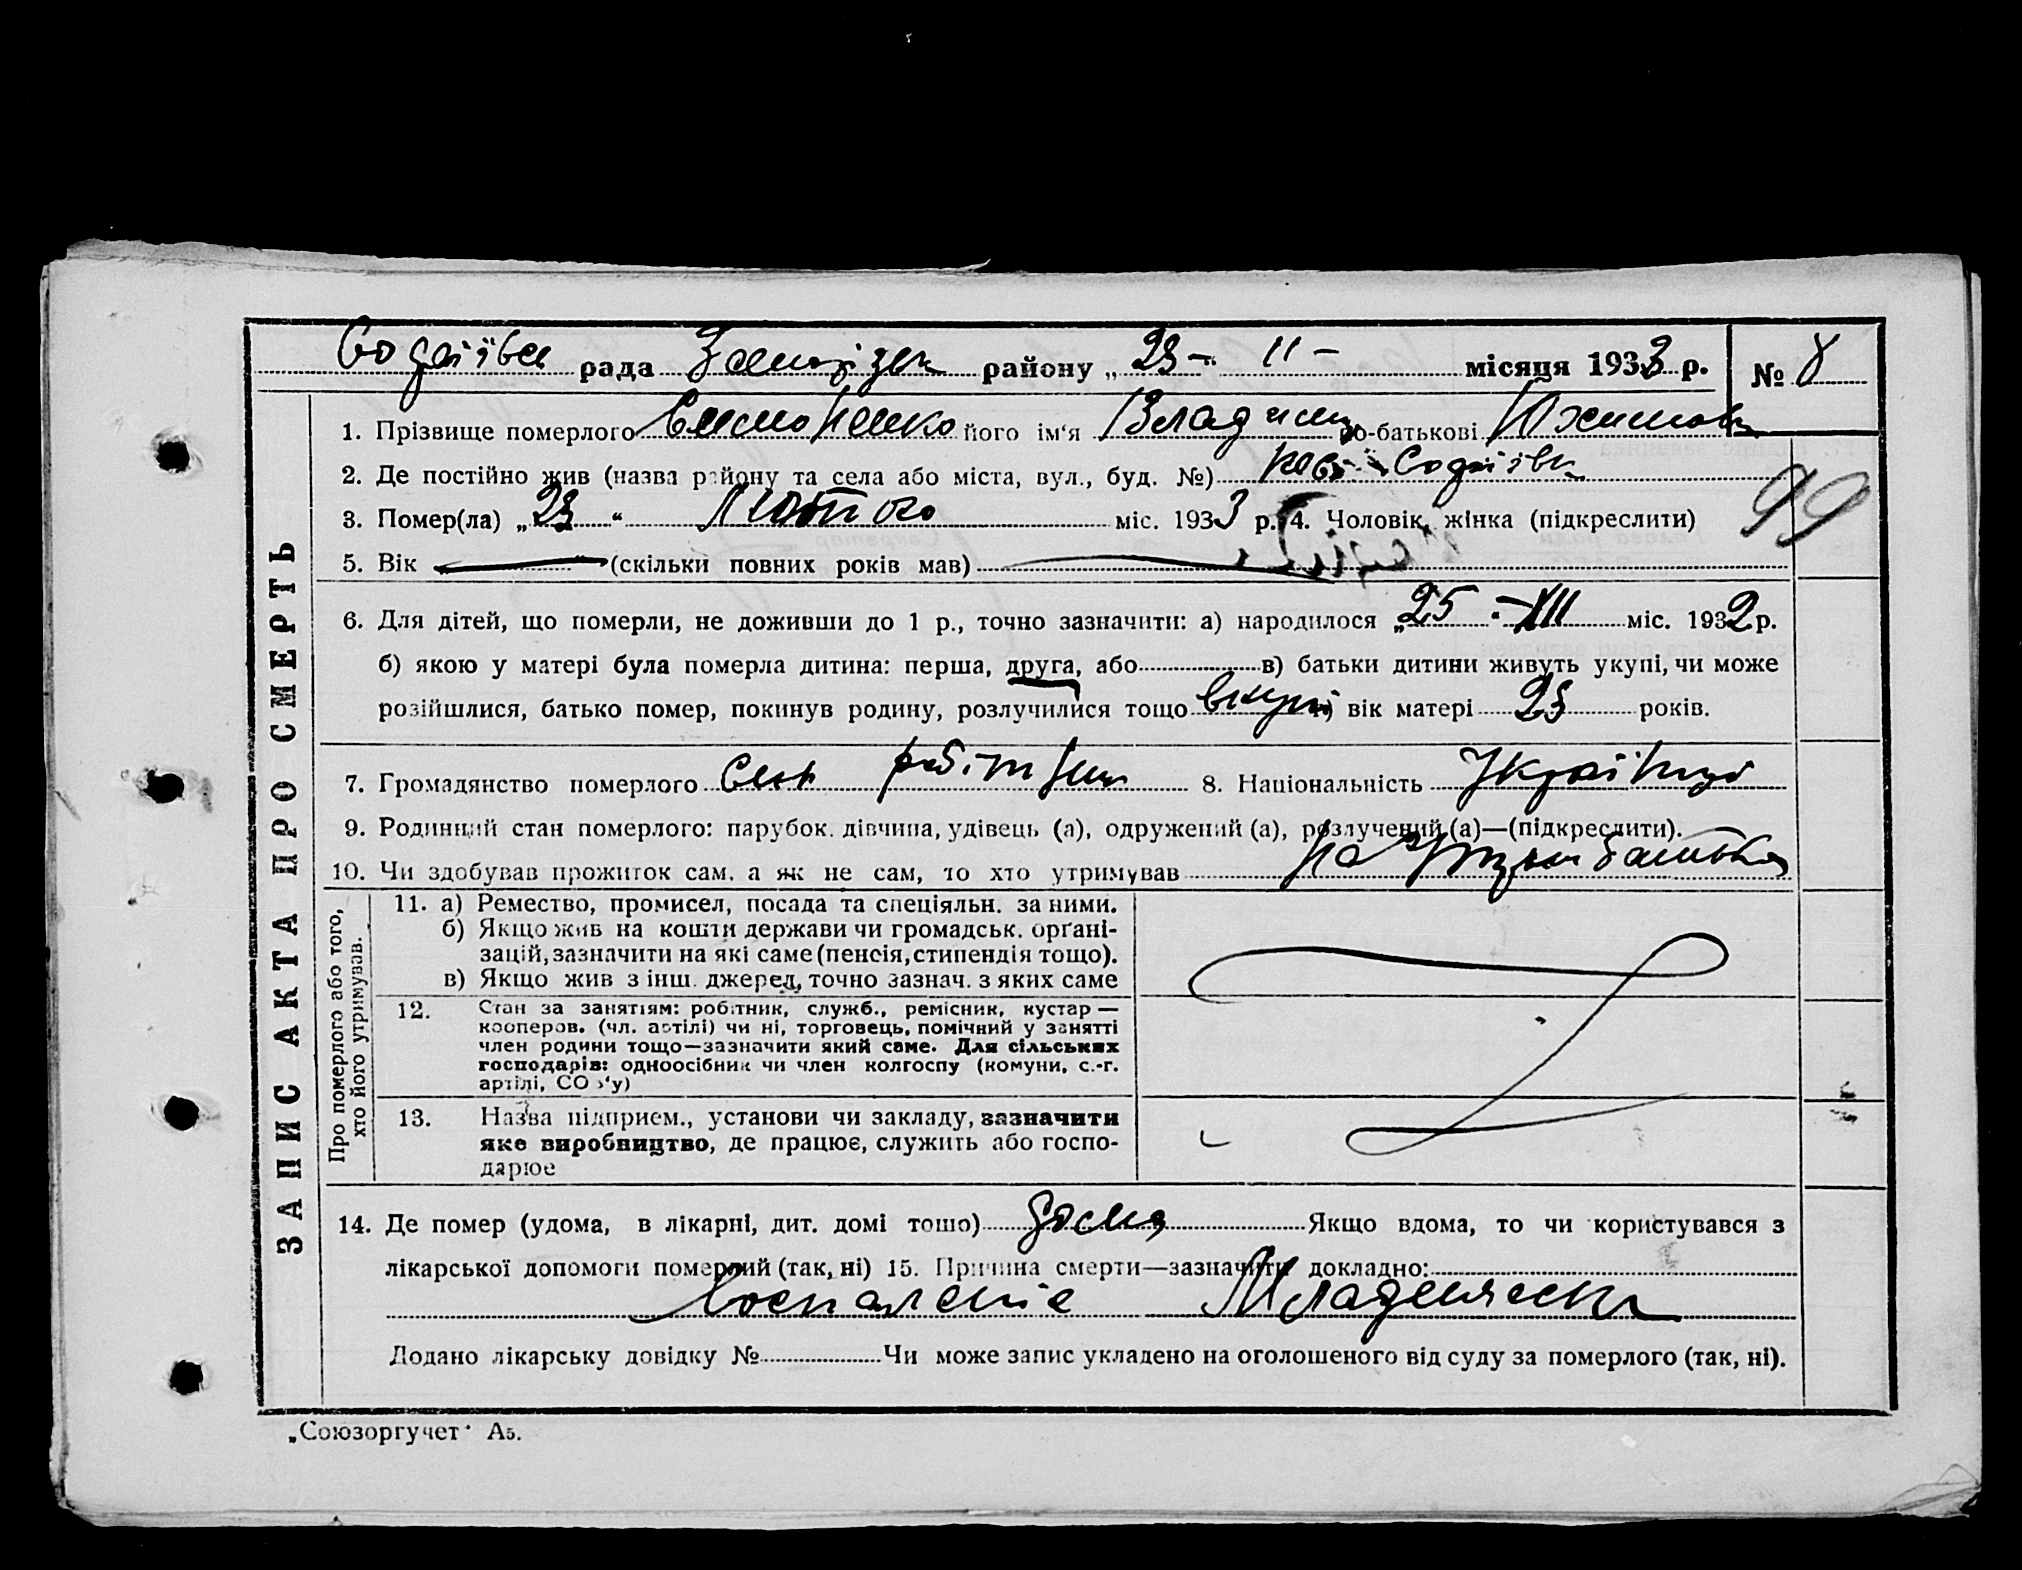 рада району „23 - “ 11 - місяця 1933 р. № 8
1. Прізвище померлого його ім'я Владим по-батькові
2. Де постійно жив (назва району та села або міста, вул., буд. №)
3. Помер(ла) „23“ Лютого міс. 1933 р. 4. Чоловік, жінка (підкреслити)
99
5. Вік — (скільки повних років мав)
6. Для дітей, що померли, не доживши до 1 р., точно зазначити: а) народилося „25“ - XII міс. 1932 р.
б) якою у матері була померла дитина: перша, друга, або в) батьки дитини живуть укупі, чи може
розійшлися, батько помер, покинув родину, розлучилися тощо вкупі г) вік матері 23 років.
7. Громадянство померлого 8. Національність
9. Родинний стан померлого: парубок, дівчина, удівець (а), одружений (а), розлучений (а)—(підкреслити).
10. Чи здобував прожиток сам, а як не сам, то хто утримував на утрим батька
ЗАПИС АКТА ПРО СМЕРТЬ
Про померлого або того,
хто його утримував.
11. а) Ремество, промисел, посада та спеціяльн. за ними.
б) Якщо жив на кошти держави чи громадськ. орґані-
зацій, зазначити на які саме (пенсія, стипендія тощо).
в) Якщо жив з інш. джерел, точно зазнач. з яких саме
12. Стан за заняттям: робітник, служб., ремісник, кустар —
кооперов. (чл. артілі) чи ні, торговець, помічний у занятті
член родини тощо—зазначити який саме. Для сільських
господарів: одноосібник чи член колгоспу (комуни, с.-г.
артілі, СОЗ'у)
13. Назва підприєм., установи чи закладу, зазначити
яке виробництво, де працює, служить або госпо-
дарює
14. Де помер (удома, в лікарні, дит. домі тощо) дома Якщо вдома, то чи користувався з
лікарської допомоги померлий (так, ні) 15. Причина смерти—зазначити докладно:
Воспаленіє Младенческ
Додано лікарську довідку № Чи може запис укладено на оголошеного від суду за померлого (так, ні).
„Союзоргучет“ А5.